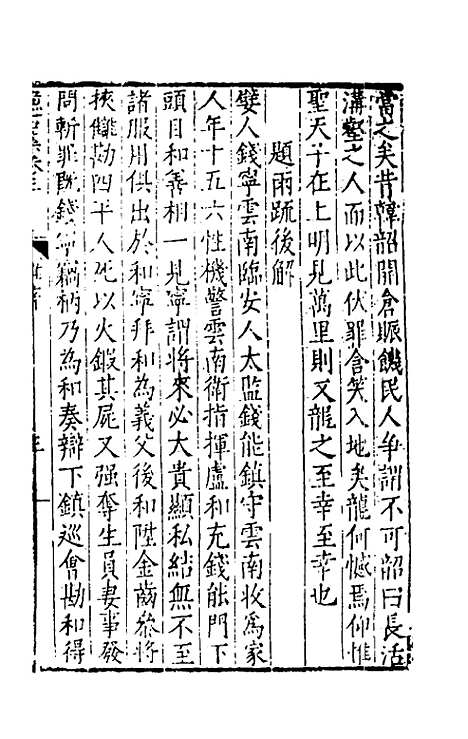 當之矣昔韓韶開倉賑饑民人争謂不可韶曰長活
溝壑之人而以此伏罪含笑入地矣龍何憾焉仰惟
聖天子在上明見萬里則又龍之至幸至幸也
題兩疏後解
嬖人錢寧雲南臨安人太監錢能鎮守雲南收爲家
人年十五六性機警雲南衛指揮盧和充錢能門下
頭目和善相一見寧謂將來必大貴顯私結無不至
諸服用俱出於和寧拜和為義父後和陞金齒叅將
挾讎勘四平人死以火鍛其屍又强奪生員妻事發
問斬罪旣錢寧竊柄乃為和奏辯下鎮巡會勘和得